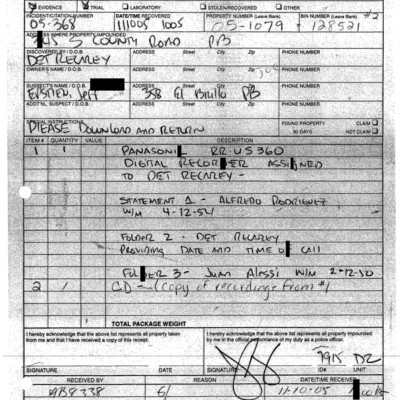 EVIDENCE TRIAL LABORATORY STOLEN/RECOVERED OTHER
INCIDENT/CITATION NUMBER DATE/TIME RECOVERED PROPERTY NUMBER (Leave Blank) BIN NUMBER (Leave Blank) #2
05-368 111005 1005 05-1079 128521
ADDRESS WHERE PROPERTY IMPOUNDED
S COUNTY ROAD PB
DISCOVERED BY / D.O.B. ADDRESS Street City Zip PHONE NUMBER
DET RECAREY
OWNER'S NAME / D.O.B. ADDRESS Street City Zip PHONE NUMBER
SUSPECT'S NAME / D.O.B. ADDRESS Street City Zip PHONE NUMBER
Jeff 358 El Brillo PB
ADD'TNL SUSPECT / D.O.B. ADDRESS Street City Zip PHONE NUMBER
SPECIAL INSTRUCTIONS FOUND PROPERTY CLAIM
PLEASE DOWNLOAD AND RETURN 90 DAYS NOT CLAIM
ITEM # QUANTITY VALUE DESCRIPTION
1 1 PANASONIC RR-US360
DIGITAL RECORDER ASSIGNED
TO DET RECAREY-
STATEMENT 1 - ALFREDO RODRIGUEZ
W/M 4-12-54
FOLDER 2 - DET RECAREY
PROVIDING DATE AND TIME OF CALL
FOLDER 3- JUAN ALESSI W/M 2-12-50
2 1 CD - (copy of recordings from #1
TOTAL PACKAGE WEIGHT
I hereby acknowledge that the above list represents all property taken
from me and that I have received a copy of this receipt.
I hereby acknowledge that the above list represents all property impounded
by me in the official performance of my duty as a police officer.
7915 D2
SIGNATURE DATE SIGNATURE ID# UNIT
RECEIVED BY REASON DATE/TIME RECEIVED
11-10-05